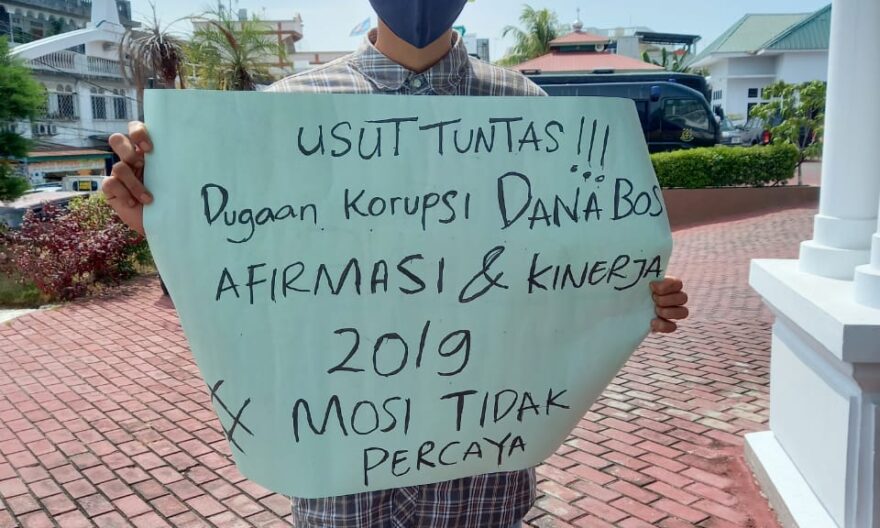 USUT TUNTAS !!!
Dugaan Korupsi DANA BOS
AFIRMASI & KINERJA
2019
X MOSI TIDAK
PERCAYA